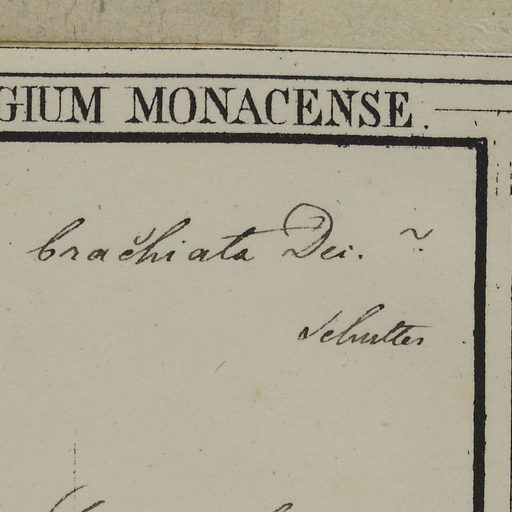 GIUM MONACENSE.
brachiata Dei. ~
Schultes